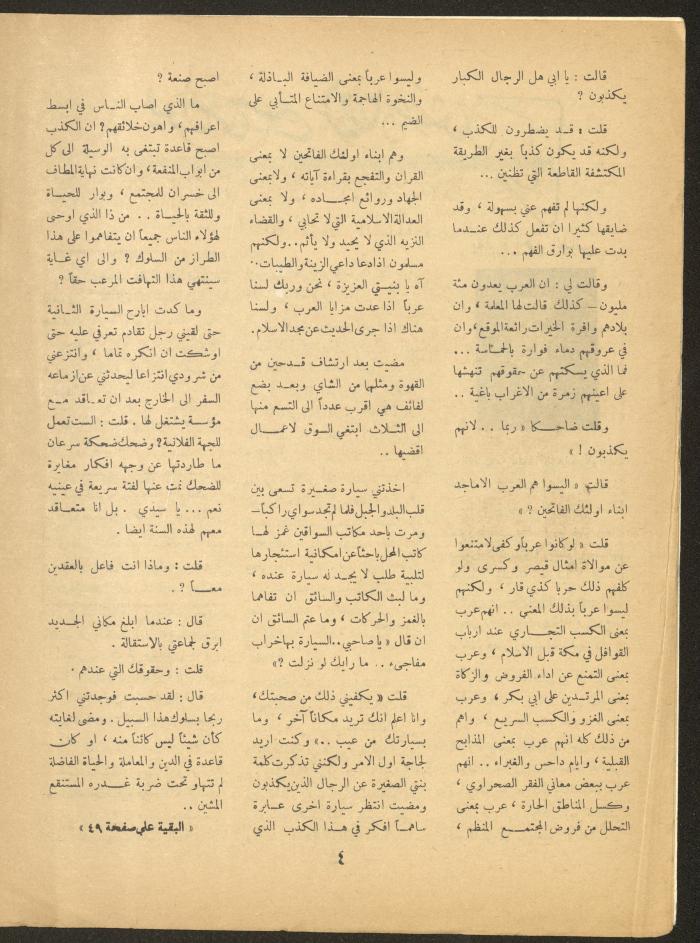 قالت : يا ابي هل الرجال الكبار
يكذبون ?
قلت : قد يضطرون للكذب ،
ولكنه قد يكون كذباً بغير الطريقة
المكتشفة القاطعة التي تظنين ...
ولكنها لم تفهم عني بسهولة ، وقد
ضايقها كثيرا ان تفعل كذلك عندما
بدت عليها بوارق الفهم ...
وقالت لي : ان العرب يعدون مئة
مليون – كذلك قالت لها المعلمة ، وان
بلادهم وافرة الخيرات رائعة الموقع، وان
في عروقهم دماء فوارة بالحماسة ...
فما الذي يسكتهم عن حقوقهم تنهشها
على اعينهم زمرة من الاغراب باغية ..
وقلت ضاحكا « ربما .. لانهم
يكذبون ! »
قالت « اليسوا هم العرب الاماجد
ابناء اولئك الفاتحين ? »
قلت « لو كانوا عرباً وكفى لامتنعوا
عن موالاة امثال قيصر وكسرى ولو
كلفهم ذلك حربا كذي قار ، ولكنهم
ليسوا عرباً بذلك المعنى .. انهم عرب
بمعنى الكسب التجاري عند ارباب
القوافل في مكة قبل الاسلام ، وعرب
بمعنى التمنع عن اداء الفروض والزكاة
بمعنى المرتدين على ابي بكر ، وعرب
بمعنى الغزو والكسب السريع ، واهم
من ذلك كله انهم عرب بمعنى المذابح
القبلية ، وايام داحس والغبراء .. انهم
عرب ببعض معاني الفقر الصحراوي ،
وكسل المناطق الحارة ، عرب بمعنى
التحلل من فروض المجتمع المنظم ،
وليسوا عرباً بمعنى الضيافة الباذلة ،
والنخوة الهاجمة والامتناع المتأبي على
الضيم ...
وهم ابناء اولئك الفاتحين لا بمعنى
القران والتفجع بقراءة آياته ، ولا بمعنى
الجهاد وروائع امجاده ، ولا بمعنى
العدالة الاسلامية التي لا تحابي ، والقضاء
النزيه الذي لا يحيد ولا يأثم .. ولكنهم
مسلمون اذا دعا داعي الزينة والطيبات ..
آه يا بنيتي العزيزة ، نحن وربك لسنا
عرباً اذا عدت مزايا العرب ، ولسنا
هناك اذا جرى الحديث عن مجد الاسلام.
مضيت بعد ارتشاف قدحين من
القهوة ومثلها من الشاي وبعد بضع
لفائف هي اقرب عدداً الى التسع منها
الى الثلاث ابتغي السوق لاعمال
اقضيها ..
اخذتني سيارة صغيرة تسعى بين
قلب البلد والجبل فلما لم تجد سواي راكباً –
ومرت باحد مكاتب السواقين غمز لها
كاتب المحل باحثاً عن امكانية استئجارها
لتلبية طلب لا يجد له سيارة عنده ،
وما لبث الكاتب والسائق ان تفاهما
بالغمز والحركات ، وما عتم السائق ان
ان قال « يا صاحبي .. السيارة بها خراب
مفاجىء .. ما رايك لو نزلت ?»
قلت « يكفيني ذلك من صحبتك ،
وانا اعلم انك تريد مكاناً آخر ، وما
بسيارتك من عيب ..» وكنت اريد
لجاجة اول الامر ولكنني تذكرت كلمة
بنتي الصغيرة عن الرجال الذين يكذبون
ومضيت انتظر سيارة اخرى عابرة
ساهماً افكر في هذا الكذب الذي
اصبح صنعة ?
ما الذي اصاب الناس في ابسط
اعرافهم ، واهون خلائقهم ? ان الكذب
اصبح قاعدة تبتغى به الوسيلة الى كل
من ابواب المنفعة ، وان كانت نهاية المطاف
الى خسران للمجتمع ، وبوار للحياة
وللثقة بالحياة .. من ذا الذي اوحى
لهؤلاء الناس جميعاً ان يتفاهموا على هذا
الطراز من السلوك ? والى اي غاية
سينتهي هذا التهافت المرعب حقاً ?
وما كدت ابارح السيارة الثانية
حتى لقيني رجل تقادم تعرفي عليه حتى
اوشكت ان انكره تماما ، وانتزعني
من شرودي انتزاعا ليحدثني عن ازماعه
السفر الى الخارج بعد ان تعاقد مع
مؤسسة يشتغل لها . قلت : الست تعمل
للجهة الفلانية ? وضحك ضحكة سرعان
ما طاردتها عن وجهه افكار مغايرة
للضحك نمت عنها لفتة سريعة في عينيه
نعم ... يا سيدي . بل انا متعاقد
معهم لهذه السنة ايضا .
قلت : وماذا انت فاعل بالعقدين
معاً ? .
قال : عندما ابلغ مكاني الجديد
ابرق لجماعتي بالاستقالة .
قلت : وحقوقك التي عندهم .
قال : لقد حسبت فوجدتني اكثر
ربحا بسلوك هذا السبيل . ومضى لغايته
كأن شيئاً ليس كائناً منه ، او كان
قاعدة في الدين والمعاملة والحياة الفاضلة
لم تتهاو تحت ضربة غدره المستنقع
المشين ..
« البقية على صفحة ٤٩ »
٤